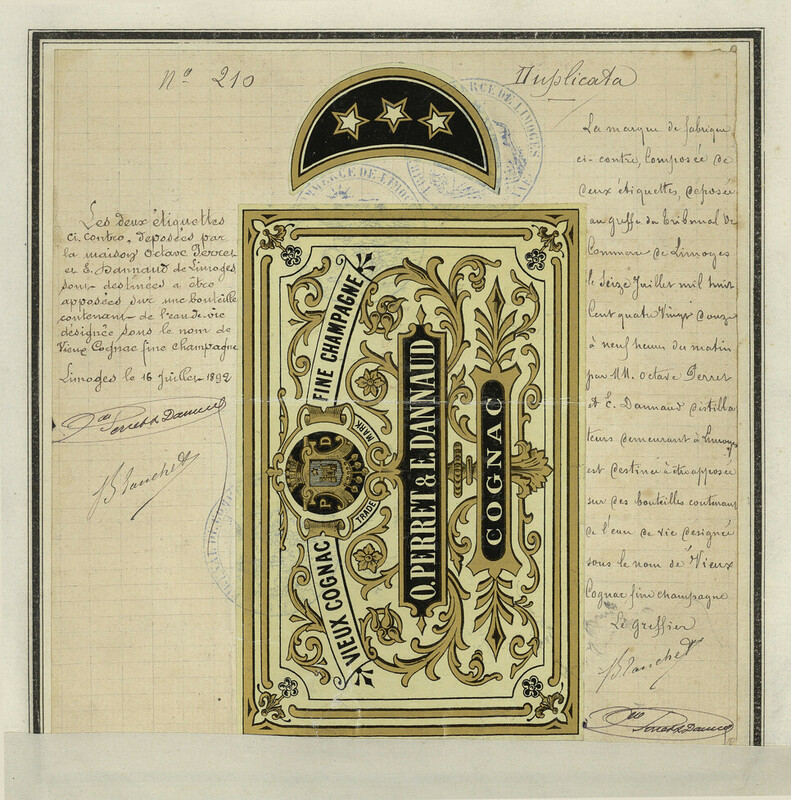 Nº 210
Duplicata
COMMERCE DE LIMOGES
COMMERCE DE LIMOGES
Les deux étiquettes
ci contre, déposées par
la maison Octave Perret
et E. Dannaud de Limoges,
sont destinées a être
apposées sur une bouteille
contenant de l'eau de vie
désignée sous le nom de
Vieux Cognac fine champagne
Limoges le 16 Juillet 1892
Perret & Dannaud
Blanchet
FINE CHAMPAGNE
VIEUX COGNAC
P D
TRADE MARK
O. PERRET & E. DANNAUD
COGNAC
La marque de fabrique
ci-contre, Composée de
deux étiquettes, déposée
au greffe du Tribunal de
Commerce de Limoges
le Seize Juillet mil huit
Cent quatre Vingt douze
à neuf heures du matin
par MM. Octave Perret
et E. Dannaud distilla
teurs demeurant à Limoges
est destinée à être apposée
sur des bouteilles contenant
de l'eau de vie designée
sous le nom de Vieux
Cognac fine champagne
Le Greffier
Blanchet
Perret & Dannaud